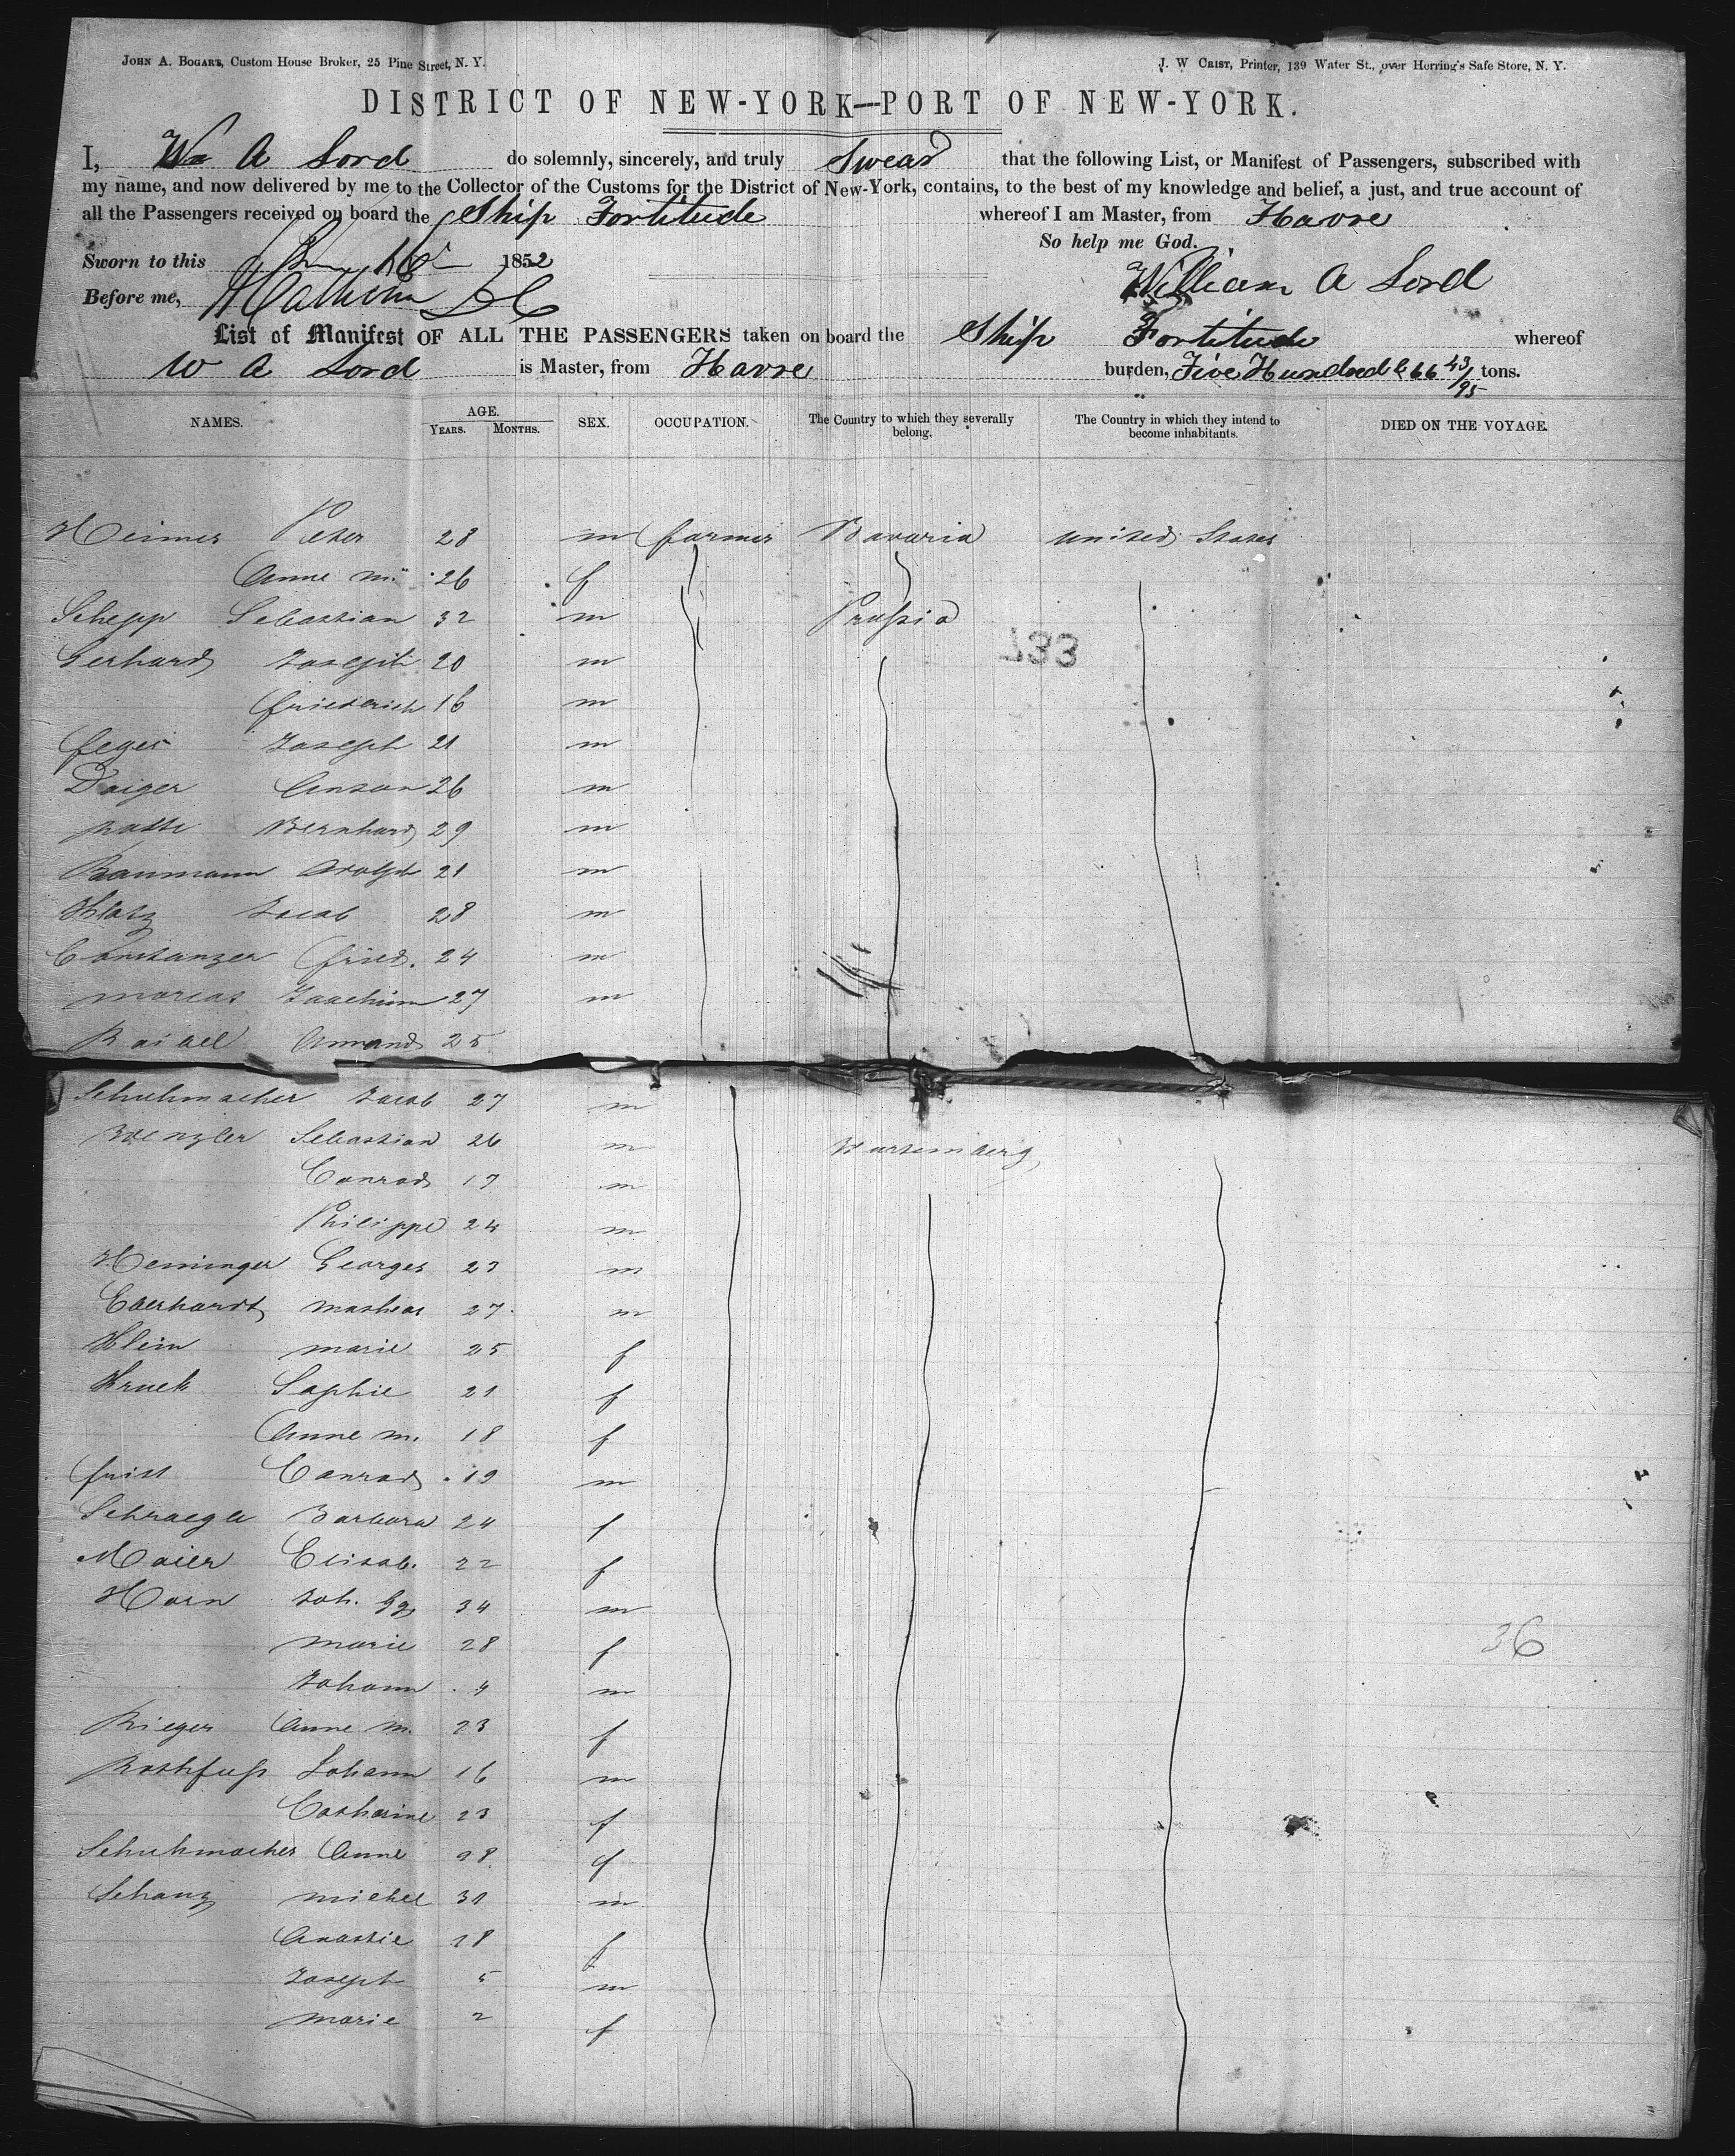 JOHN A. BOGART, Custom House Broker, 25 Pine Street, N. Y. J. W CRIST, Printer, 139 Water St., over Herring's Safe Store, N. Y.
DISTRICT OF NEW-YORK—PORT OF NEW-YORK.
I, Wm A Lord do solemnly, sincerely, and truly Swear that the following List, or Manifest of Passengers, subscribed with
my name, and now delivered by me to the Collector of the Customs for the District of New-York, contains, to the best of my knowledge and belief, a just, and true account of
all the Passengers received on board the Ship Fortitude whereof I am Master, from Havre
So help me God.
Sworn to this 1852
William A Lord
Before me,
List of Manifest OF ALL THE PASSENGERS taken on board the Ship Fortitude whereof
W A Lord is Master, from Havre burden, Five Hundred & 66 43/95 tons.
NAMES. AGE. YEARS. MONTHS. SEX. OCCUPATION. The Country to which they severally belong. The Country in which they intend to become inhabitants. DIED ON THE VOYAGE.
Heimer Peter 28 m farmer Bavaria united States
Anne m. 26 f
Schepp Sebastian 32 m Prussia
733
Gerhard Joseph 20 m
friederich 16 m
feger Joseph 21 m
Daiger Anton 26 m
Bernhard 29 m
Baumann Adolph 21 m
Klotz Jacob 28 m
Constanzer fried. 24 m
marcas Joachim 27 m
Amand 25
Schuhmacher Jacob 27 m
Wenzler Sebastian 26 m Wurtemberg
Conrad 17 m
Philippe 24 m
Heninger Georges 23 m
Eberhardt mathias 27 m
Klein marie 25 f
Kruck Sophie 21 f
Anne m. 18 f
frist Conrad 19 m
Schraegle Barbara 24 f
Maier Elisab. 22 f
Horn Joh. Gg 34 m
marie 28 f
36
Johann 4 m
Rieger Anne m. 23 f
Rothfuss Johann 16 m
Catharine 23 f
Schuhmacher Anne 18 f
Schanz michel 31 m
Anastie 28 f
Joseph 5 m
marie 2 f